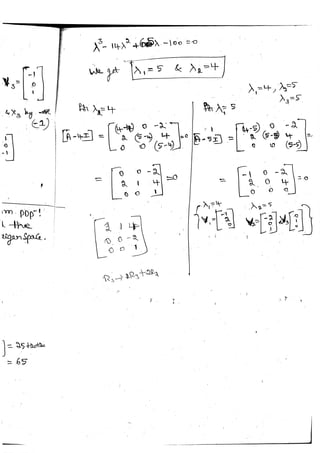 λ³ - 14λ² + 65λ - 100 = 0
We get λ₁ = 5 & λ₂ = 4
V₃ = [-1 0 1]
λ₁=4, λ₂=5
λ₃=5
4 x₃ by
(-1)
At λ₂=4
[A-4I] = [(4-4) 0 -2
2 (5-4) 4
0 0 (5-4)] =0
= [0 0 -2
2 1 4
0 0 1] =0
[2 1 4
0 0 -2
0 0 1]
R₃→2R₃+2R₂
At λ₁= 5
[A-5I] = [(4-5) 0 -2
2 (5-5) 4
0 0 (5-5)] =
= [-1 0 -2
2 0 4
0 0 0] =0
λ₁=4 λ₂=5
{V₁=[-1 2 0] V₂=[-2 0 1] & V₃=[0 1 0]}
m. pop!
the
eigen space.
= 65